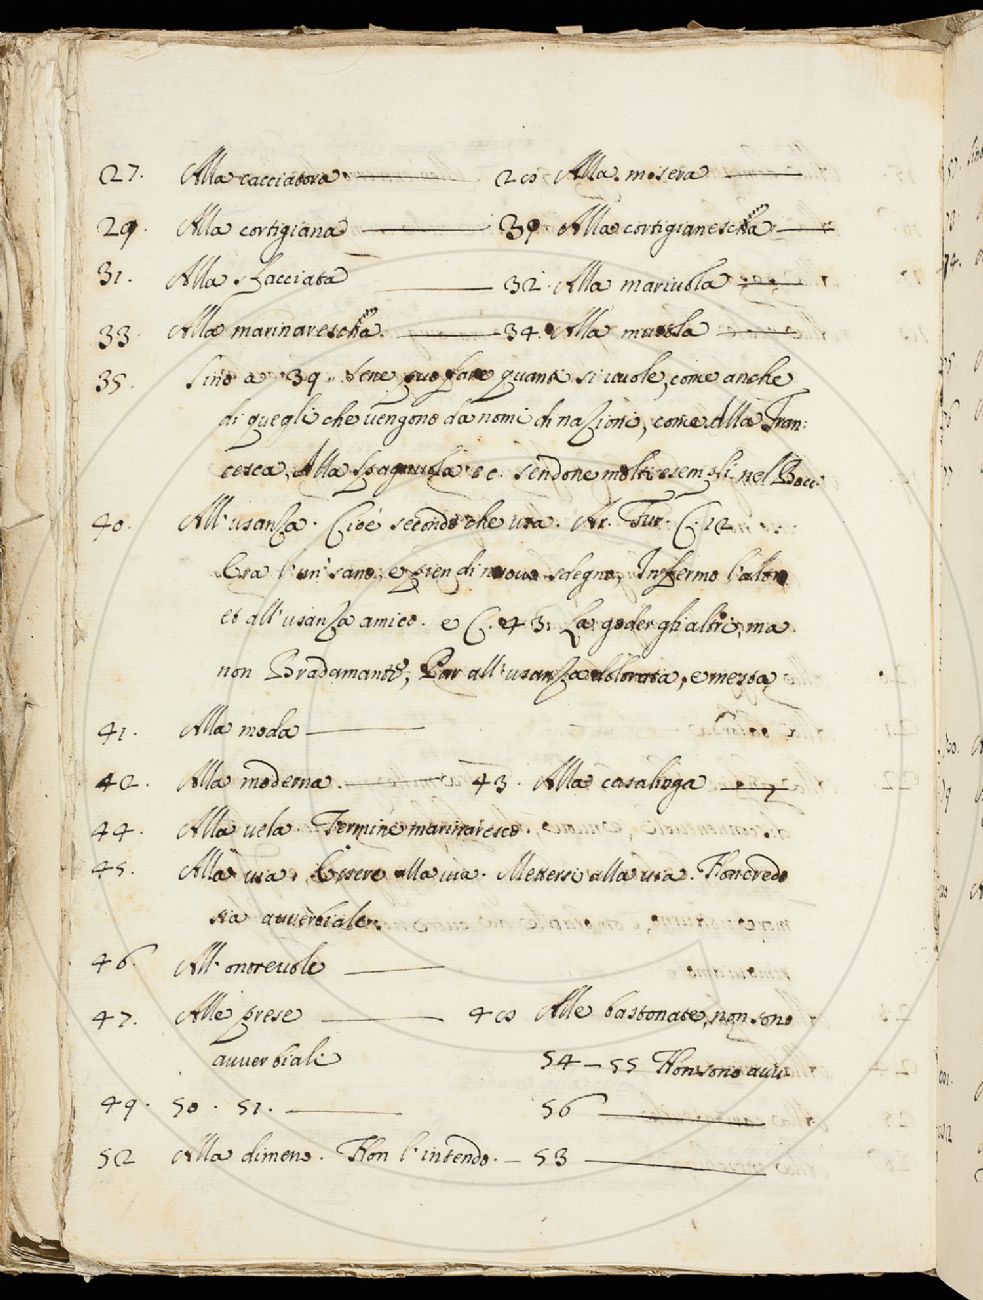 27. Alla cacciatora 28 Alla misera
29. Alla cortigiana 30. Alla cortigianescha
31. Alla sfacciata 32. Alla mariuola
33. Alla marinarescha 34. Alla mutola
35. Sino a 39. Sene può fare quanti si vuole, come anche
di quegli che vengono da nomi di nazioni, come Alla Fran:
cesca, Alla Spagnuola ec. sendone molti esempli nel Bocc.
40. All'usanza. Cioè secondo che usa. Ar. Fur. C. 12
Era l'un sano, e pien di nuovo sdegno, Infermo l'altro
et all'usanza amico. e C. 43. La goder gli altri, ma
non Bradamante, Par all'usanza dolorosa, e mesta,
41. Alla moda
42. Alla moderna 43. Alla casalinga
44. Alla vela. Termine marinaresco.
45. Alla via. Essere alla via. Mettersi alla via. Non credo
sia avverbiale.
46. All'onorevole
47. Alle prese 48 Alle bastonate, non sono
avverbiali 54 – 55 Non sono avv.
49. 50. 51. 56
52 Alla dimeno. Non l'intendo. – 53